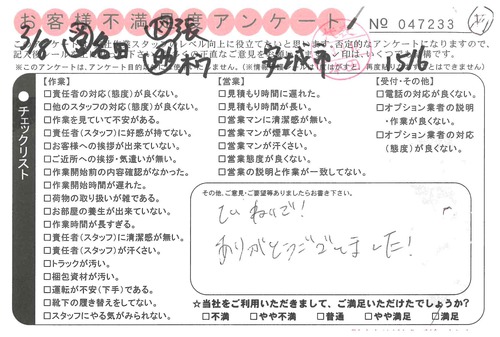 お客様不満度アンケート
№ 047233
【作業】
□責任者の対応(態度)が良くない。
□他のスタッフの対応(態度)が良くない。
□作業を見ていて不安がある。
□責任者(スタッフ)に好感が持てない。
□お客様への挨拶が出来ていない。
□ご近所への挨拶・気遣いが無い。
□作業開始前の内容確認がなかった。
□作業開始時間が遅れた。
□荷物の取り扱いが雑である。
□お部屋の養生が出来ていない。
□作業時間が長すぎる。
□責任者(スタッフ)に清潔感が無い。
□責任者(スタッフ)が汗くさい。
□トラックが汚い。
□梱包資材が汚い。
□運転が不安(下手)である。
□靴下の履き替えをしてない。
□スタッフにやる気がみられない。
【営業】
□見積もり時間に遅れた。
□見積もり時間が長い。
□営業マンに清潔感が無い。
□営業マンが煙草くさい。
□営業マンが汗くさい。
□営業態度が良くない。
□営業の説明と作業が一致してない。
【受付・その他】
□電話の対応が良くない。
□オプション業者の説明
・作業が良くない。
□オプション業者の対応
(態度)が良くない。
チェックリスト
その他、ご意見・ご要望等ありましたらお書き下さい。
ていねいで!
ありがとうございました!
☆当社をご利用いただきまして、ご満足いただけたでしょうか?
□不満 □やや不満 □普通 □やや満足 □満足